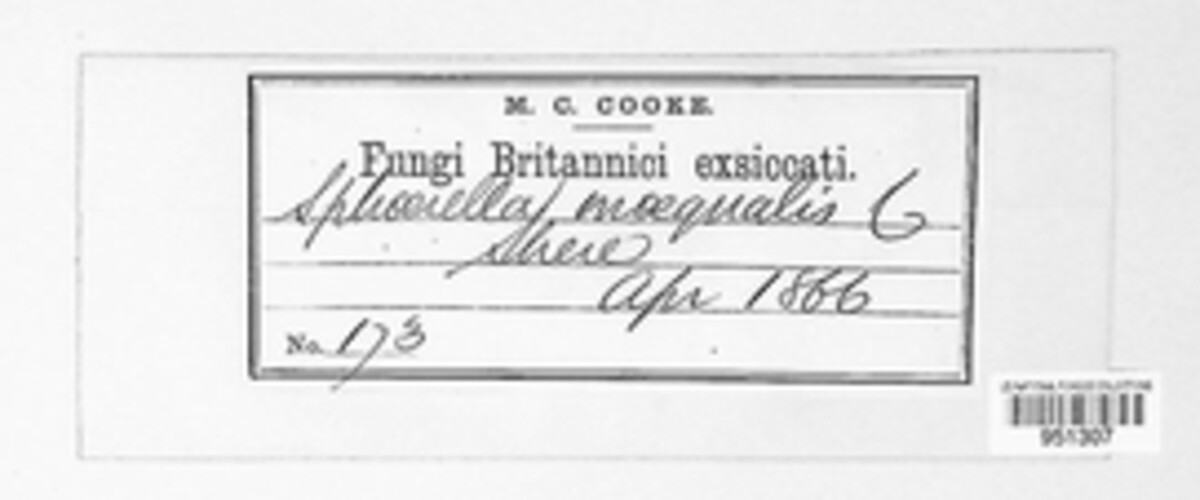 M. C. COOKE.
Fungi Britannici exsiccati.
Sphaerella inaequalis C
Shere
Apr 1866
No. 173
951307